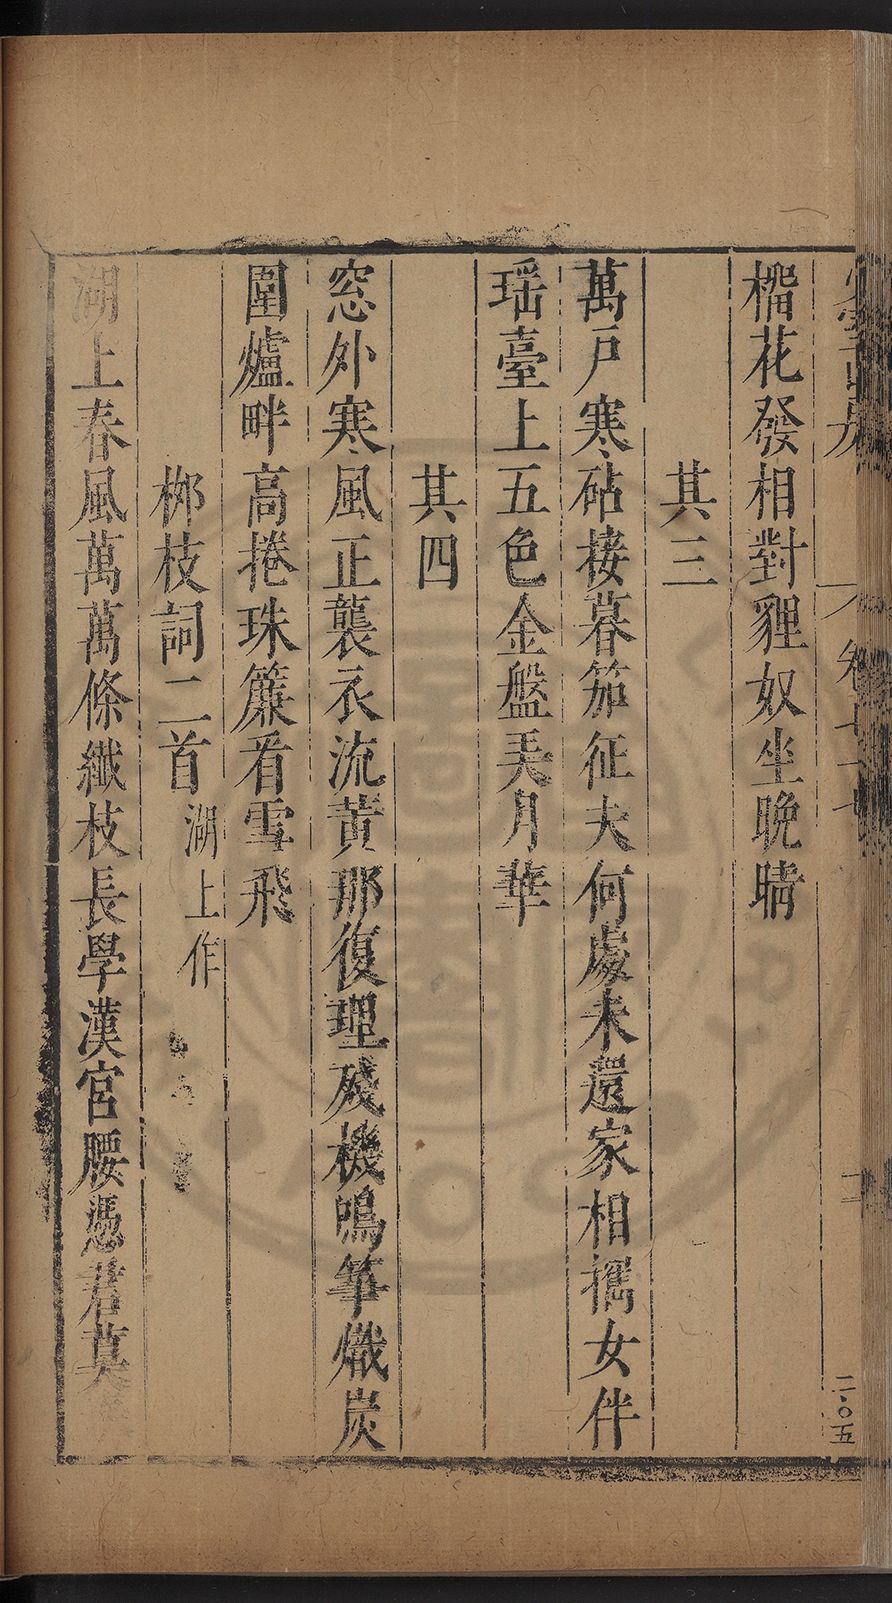 榴花發相對貍奴坐晚晴
其三
萬戶寒砧接暮笳征夫何處未還家相攜女伴
瑶臺上五色金盤美月華
其四
窓外寒風正襲衣流黃那復理殘機鳴筝熾炭
圍爐畔高捲珠簾看雪飛
桺枝詞二首湖上作
湖上春風萬萬條纖枝長學漢宮腰憑君莫